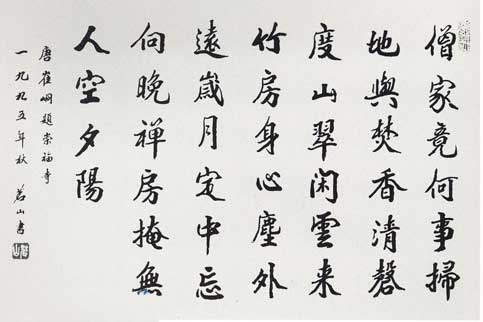 僧家竟何事掃
地與焚香清磬
度山翠闲雲来
竹房身心塵外
遠嵗月定中忘
向晚禅房掩無
人空夕陽
唐崔峒題崇福寺
一九九五年秋 茗山書